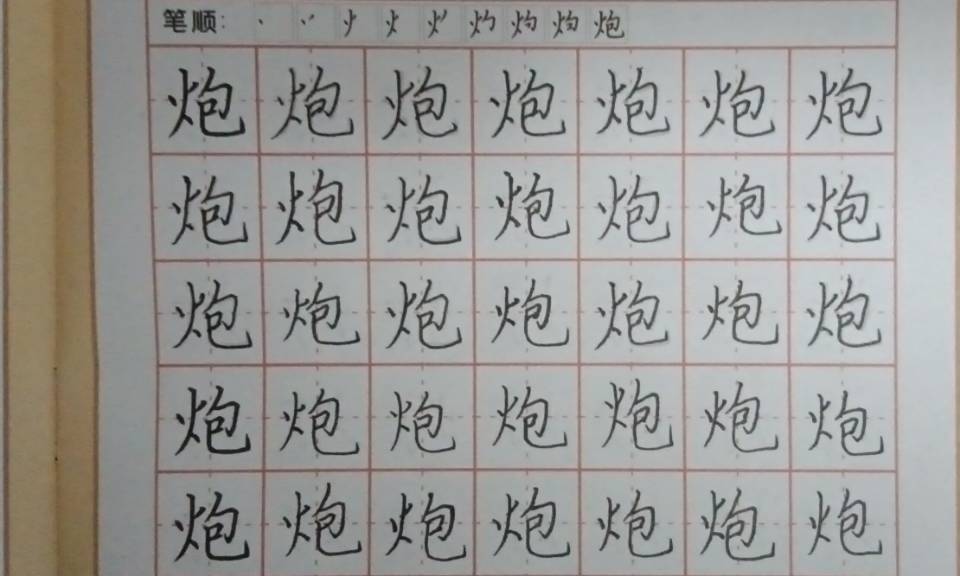 笔顺: 丶 丷 火 火 炮
炮 炮 炮 炮 炮 炮 炮
炮 炮 炮 炮 炮 炮 炮
炮 炮 炮 炮 炮 炮 炮
炮 炮 炮 炮 炮 炮 炮
炮 炮 炮 炮 炮 炮 炮